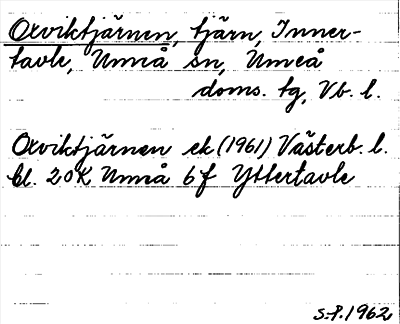 Oxviktjärnen, tjärn, Inner-
tavle, Umeå sn, Umeå
doms. tg, Vb. l.
Oxviktjärnen ek (1961) Västerb. l.
bl. 20K Umeå 6f Yttertavle
S.P. 1962